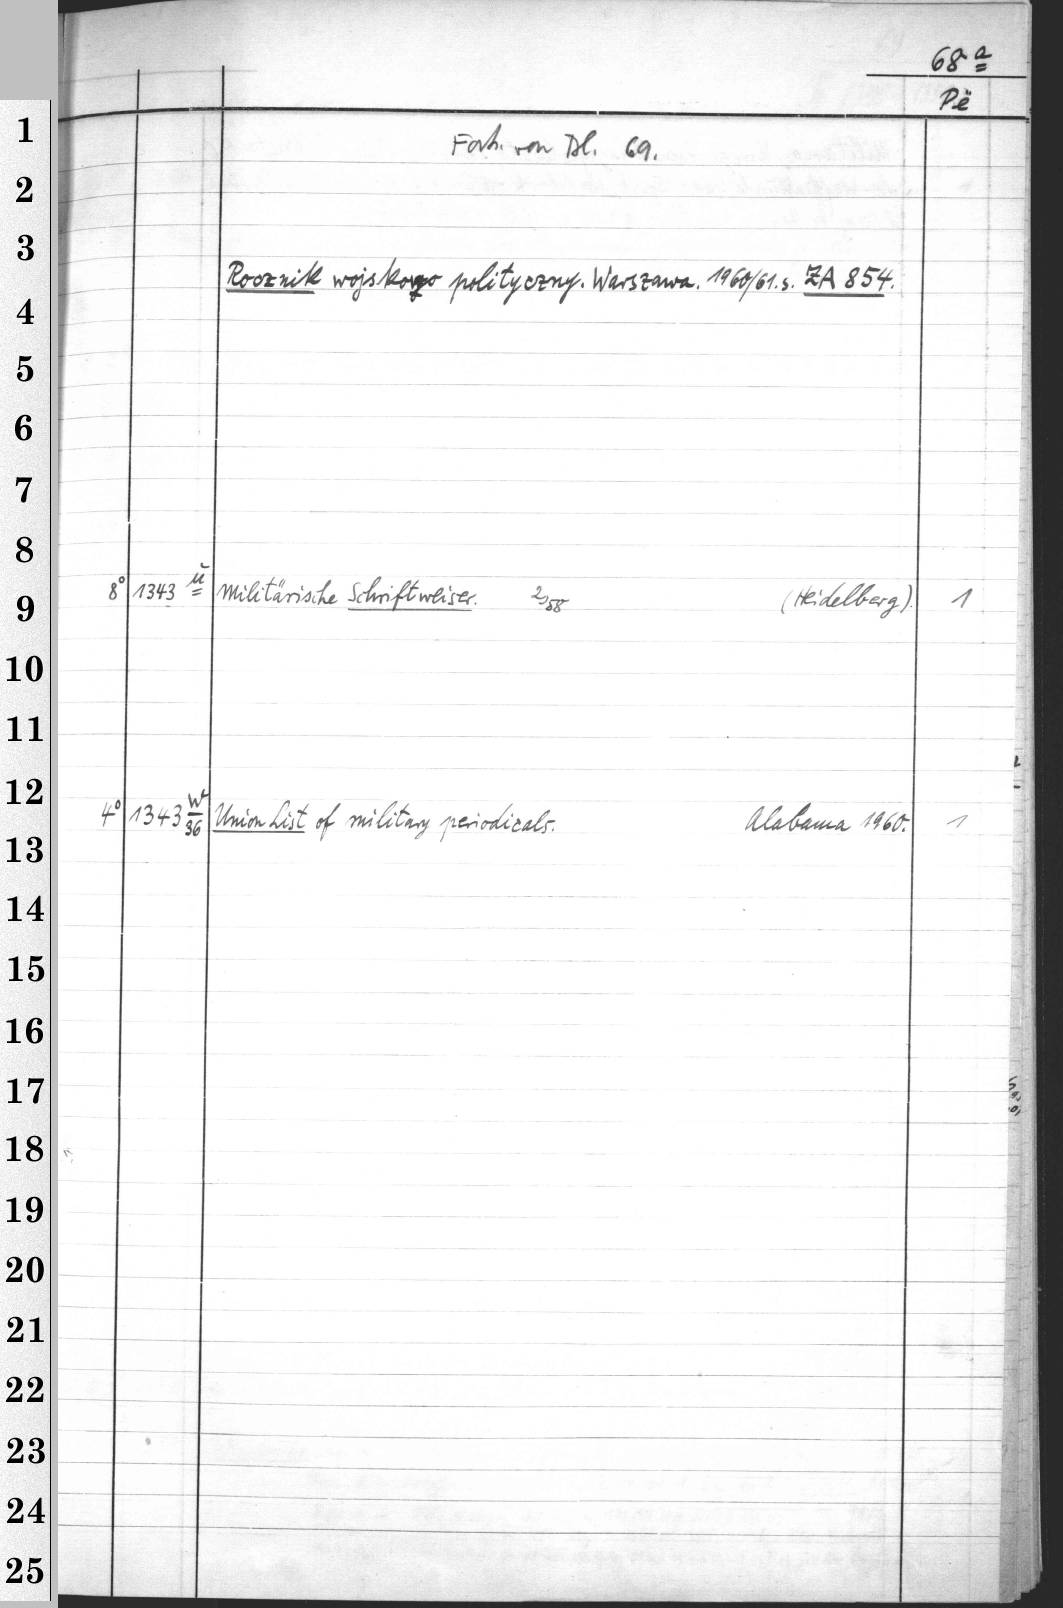 68 a
Pë
1
Forts. von Bl. 69.
2
3
Rocznik wojskowo polityczny. Warszawa. 1960/61. s. ZA 854.
4
5
6
7
8
8° 1343 ü Militärische Schriftweiser. 2,58 (Heidelberg). 1
9
10
11
12
4° 1343 w/36 Union List of military periodicals. Alabama 1960. 1
13
14
15
16
17
18
19
20
21
22
23
24
25